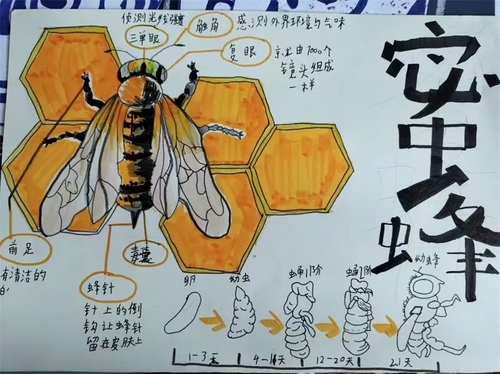 侦测光线强弱
三单眼
触角
感识别外界环境与气味
复眼
京尤由7000个
镜头组成
一样
蜜蜂
前足
有清洁的
毒囊
蜂针
针上的倒
钩让蜂针
留在皮肤上
卵
幼虫
蛹1阶
蛹2阶
幼蜂
1-3天
9-14天
12-20天
21天